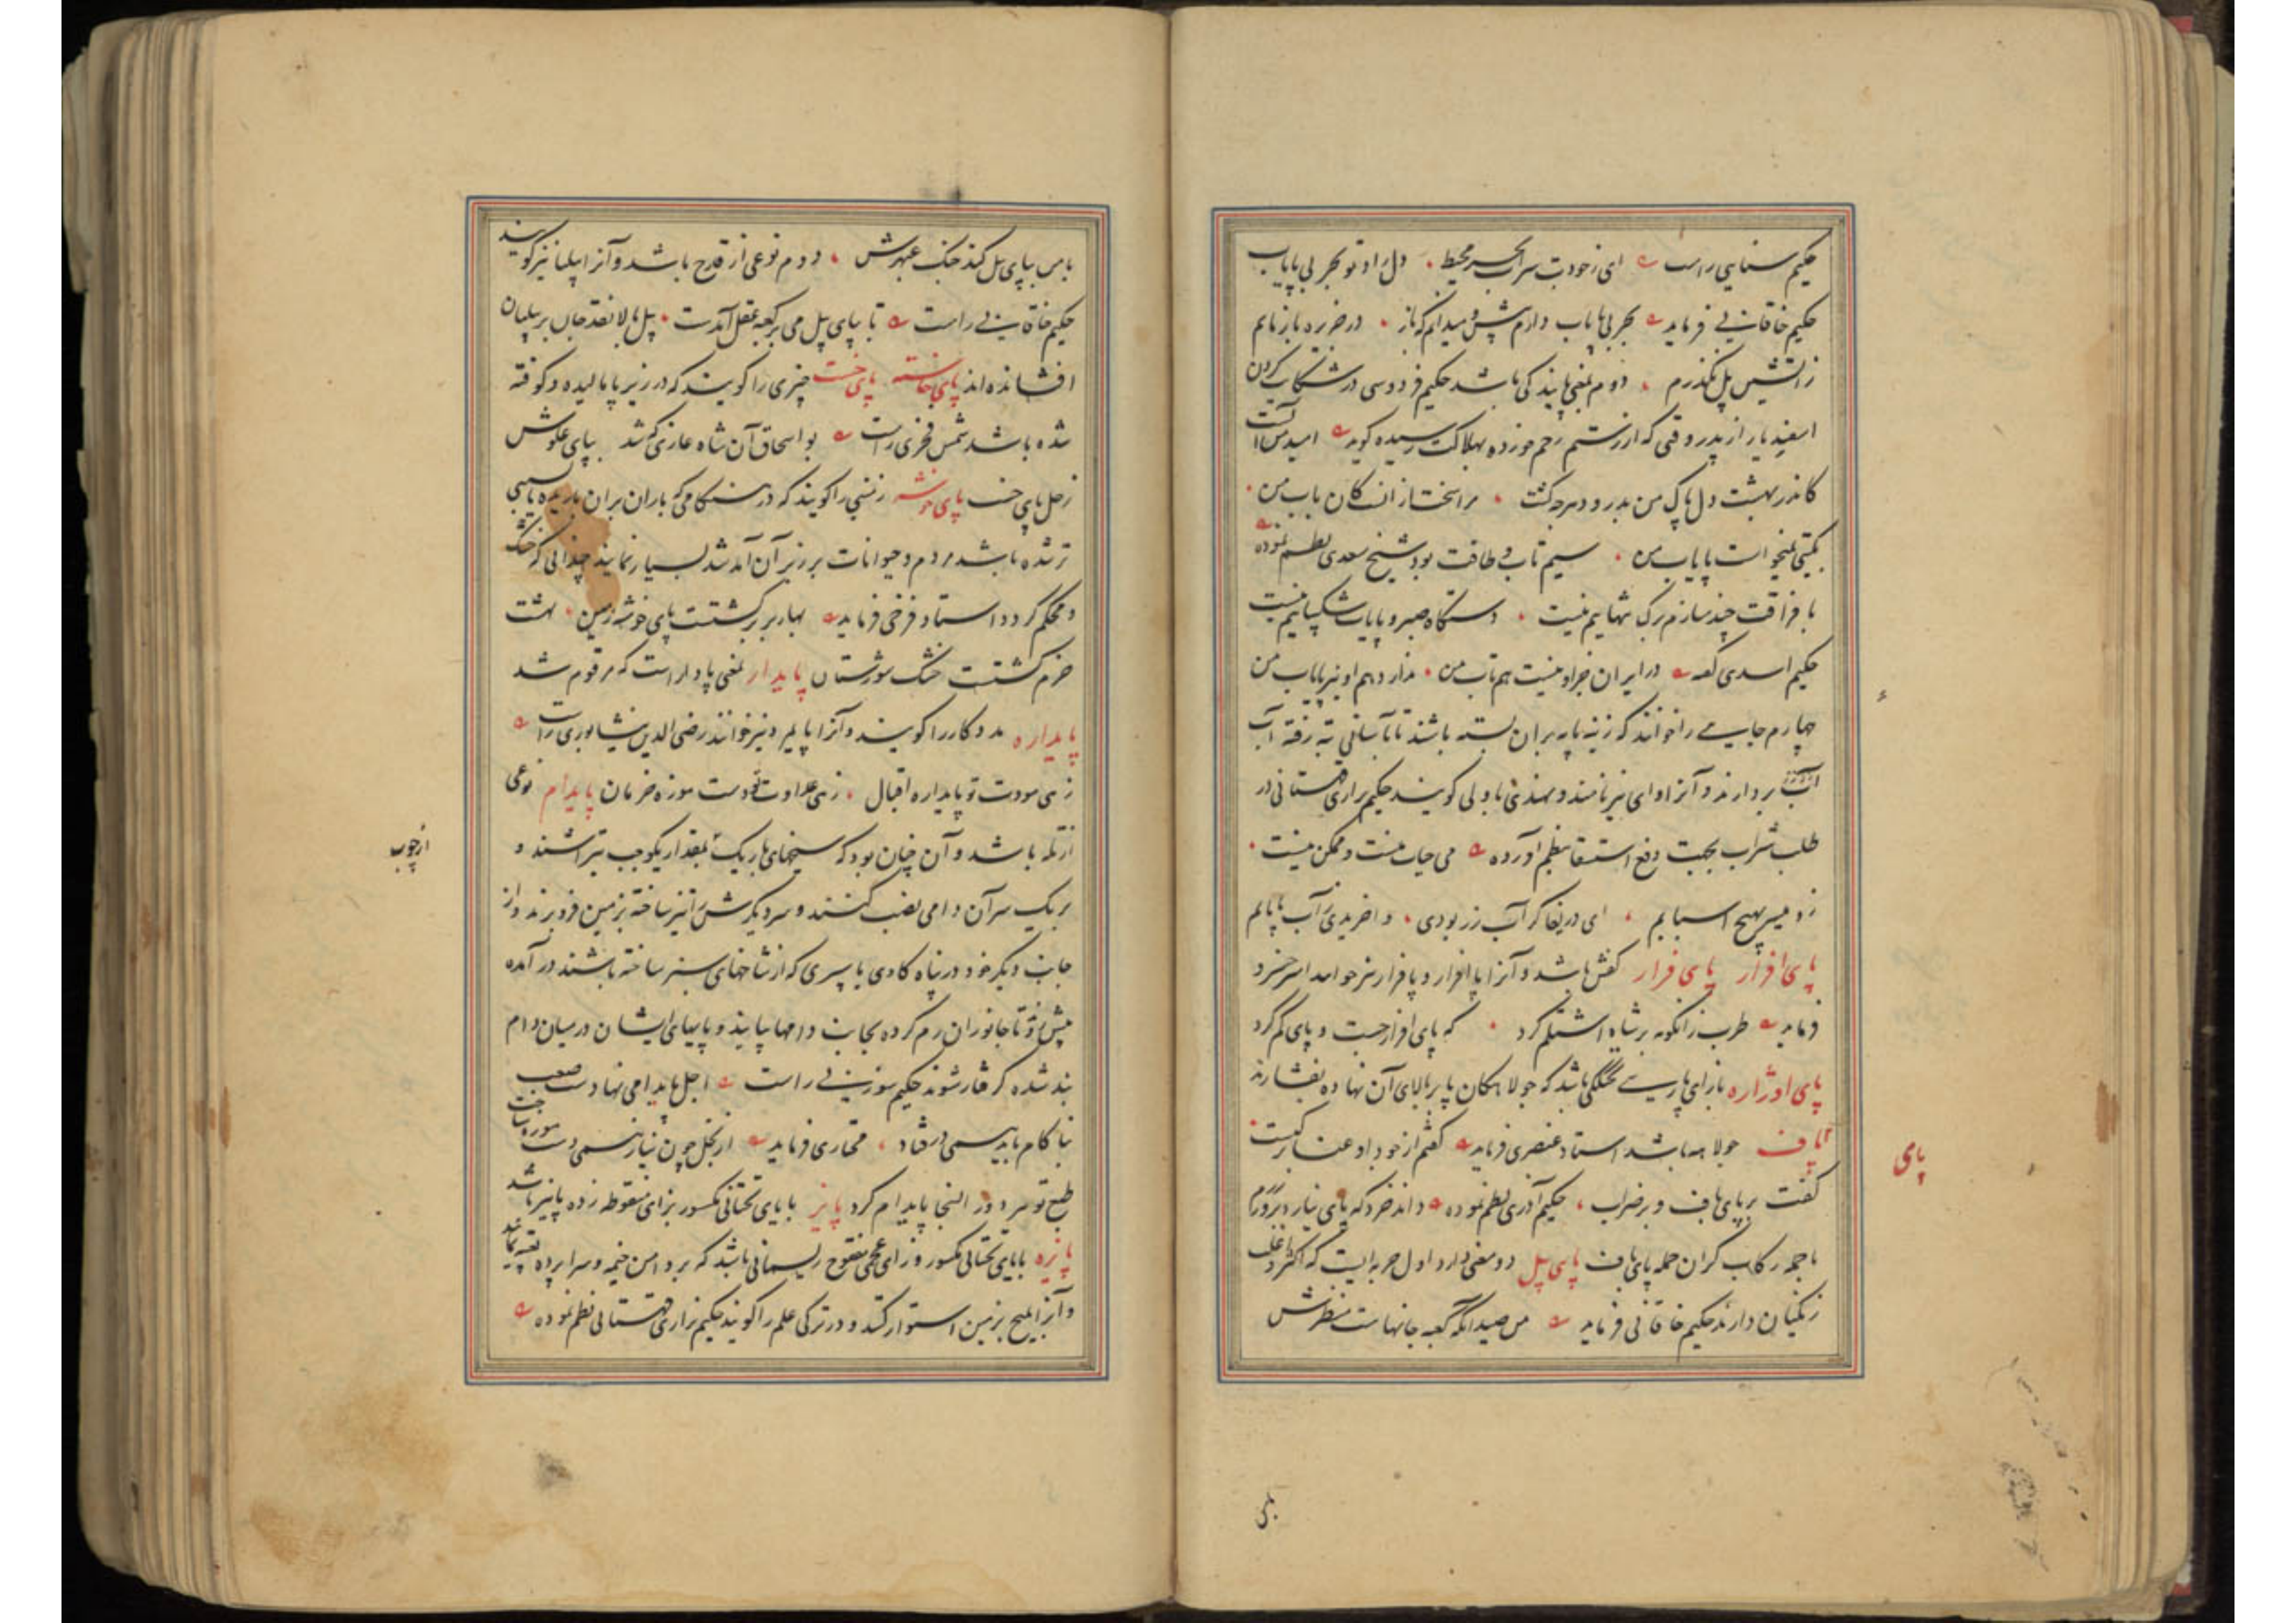 حکیم سنایی راست ای ز خودت سراب بحر محیط دل راد تو بحر بی پایاب
حکیم خاقانی فرماید بحر بی پایاب دارم پیش و میدانم که باز در جزیره بازمانم
زآتشین پل نگذرم دوم بمعنی پایندگی باشد حکیم فردوسی در شکایت کردن
اسفندیار از پدر وقتی که از رستم زخم خورده بهلاکت رسیده گوید امید من آنست
کاندر بهشت دل پاک من بدرود هرچه کشت
بگیتی نمیخواست پایاب من سیم تاب و طاقت بود شیخ سعدی نظم نموده
با فراقت چند سازم برگ تنهاییم نیست دستگاه صبر و پایاب شکیباییم نیست
حکیم اسدی گفته در ایران جز او نیست هم تاب من ندارد هم او نیز پایاب من
چهارم جایی را خوانند که زینه پایه بران بسته باشند تا بآسانی ته رفته آب
بردارند و آنرا وای نیز نامند و بهندی باولی گویند حکیم نزاری قهستانی در
طلب شراب بجهت دفع استسقا بنظم آورده می حیات منست و ممکن نیست
زو میسر بهیچ اسبابم ای دریغا گر آب زر بودی
پای افزار پای فرار کفش باشد و آنرا پا افزار و پافزار نیز خوانند امیر خسرو
فرماید طرب زانگونه بر شاه اشتلم کرد که پای افزار جست و پای گم کرد
پای اوژاره بازای پارسی تختگکی باشد که جولاهکان پا بر بالای آن نهاده بفشارند
پای باف جولاهه باشد استاد عنصری فرماید
گفت بر پای باف و بر ضراب حکیم آذری نظم نموده داند خرد که پای نیارد
با جمله رکاب گران حمله پای باف پای پیل دو معنی دارد اول حربه ایست که اکثر و اغلب
زنگیان دارند حکیم خاقانی فرماید من صید آنکه کعبه جانهاست منظرش
پای
با من بپای پیل کند جنگ عبهرش دوم نوعی از قدح باشد و آنرا پیلپا نیز گویند
حکیم خاقانی راست تا بپای پیل می بر کعبه عقل آمدست پیل بالا نقد جان بر پیلبان
افشانده اند پای خاسته پای خست چیزی را گویند که در زیر پا مالیده و کوفته
شده باشد شمس فخری راست بو اسحاق آن شاه غازی که شد بپای علوش
زحل پای خست پای خوشه زمینی را گویند که در هنگامی که باران بران باریده
تر شده باشد مردم و حیوانات بر زبر آن آمد شد بسیار نمایند چندانی که خشک
و محکم گردد استاد فرخی فرماید بهار بر گشتست پای خوشه زمین بهشت
خرم گشتست خشک شورستان پایدار بمعنی پادار است که مرقوم شد
پایداره مددکار را گویند و آنرا پایمرد نیز خوانند رضی الدین نیشابوری راست
زهی مودت تو پایداره اقبال زهی عداوت تو دست موزه حرمان پایدام نوعی
از تله باشد و آن چنان بود که سیخهای باریک بمقدار یکوجب بتراشند و
بر یک سر آن دامی نصب کنند و سر دیگرش را تیز ساخته بزمین فرو برند و از
جانب دیگر خود در پناه گاوی یا سپری که از شاخهای سبز ساخته باشند در آمده
پیش رفته تا جانوران رم کرده بجانب دامها بیایند و پایهای ایشان در میان دام
بند شده گرفتار شوند حکیم سوزنی راست اجل پایدامی نهادست صعب
بناکام باید بسی در فتاد مختاری فرماید
طبع تو سرد زر آنجا پایدام کرد پایز با یای تحتانی مکسور بزای منقوطه زده پاییز باشد
پایزه با یای تحتانی مکسور و زای عجمی مفتوح ریسمانی باشد که بر دامن خیمه و سراپرده
و آنرا بمیخ بزمین استوار کنند و در ترکی علم را گویند حکیم نزاری قهستانی نظم نموده
از چوب